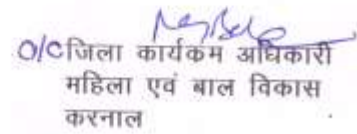 O/C जिला कार्यकम अधिकारी
महिला एवं बाल विकास
करनाल